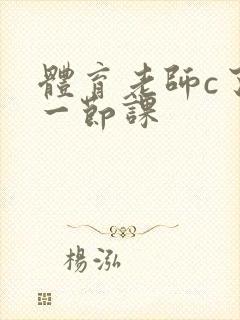 體育老師c了
一節課
楊泓